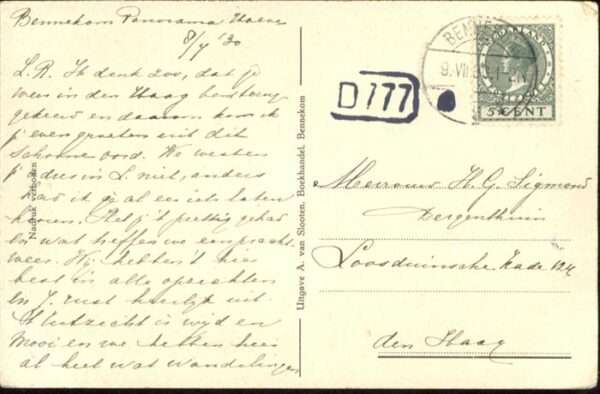 Bennekom Panorama Hoeve
8/7 '30
L.R. Ik denk zoo, dat je
weer in den Haag bent terug
gekeerd en daarom kom ik
je even groeten uit dit
schoone oord. We wisten
je adres in L. niet, anders
had ik je al eer iets laten
hooren. Het prettig gehad
en wat treffen we een pracht
weer. Wij hebben 't hier
best in alle opzichten
en J. rust heerlijk uit.
't Uitzicht is wijd en
mooi en we hebben hier
al heel wat wandelingen
Nadruk verboden
Uitgave A. van Slooten, Boekhandel, Bennekom
D 777
BENNE
9.VII
NEDERLAND
5 CENT
Mevrouw H. G. Sigmond
Loosduinsche Kade 124
den Haag